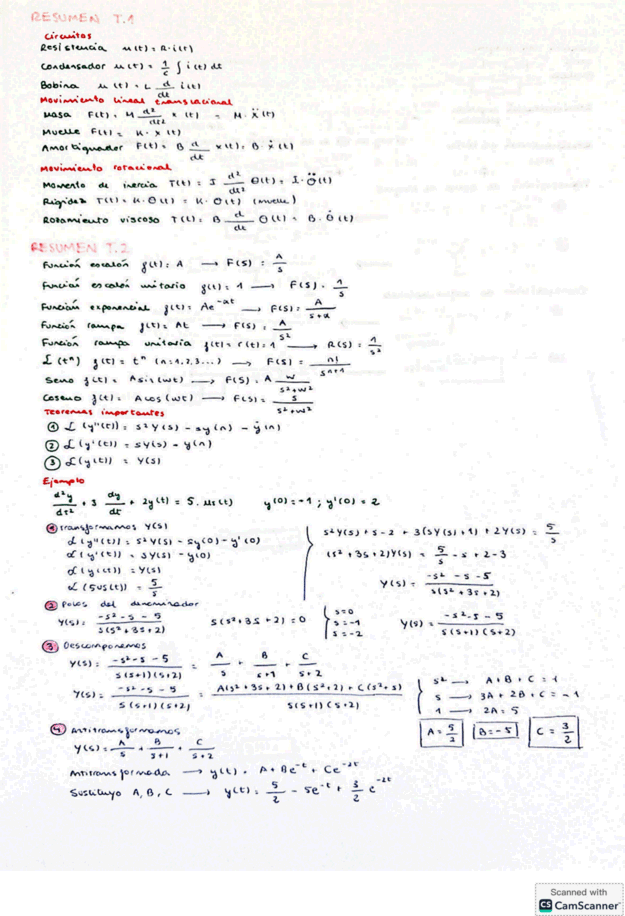 RESUMEN T.1
Circuitos
Resistencia u(t) = R·i(t)
Condensador u(t) = 1/C ∫ i(t) dt
Bobina u(t) = L d/dt i(t)
Movimiento lineal translacional
Masa F(t) = M d²/dt² x(t) = M·ẍ(t)
Muelle F(t) = K·x(t)
Amortiguador F(t) = B d/dt x(t) = B·ẋ(t)
Movimiento rotacional
Momento de inercia T(t) = I d²/dt² Θ(t) = I·Θ̈(t)
Rigidez T(t) = K·Θ(t) = K·Θ(t) (muelle)
Rozamiento viscoso T(t) = B d/dt Θ(t) = B·Θ̇(t)
RESUMEN T.2
Función escalón f(t) = A → F(s) = A/s
Función escalón unitario f(t) = 1 → F(s) = 1/s
Función exponencial f(t) = Ae^-αt → F(s) = A/(s+α)
Función rampa f(t) = At → F(s) = A/s²
Función rampa unitaria f(t) = r(t) = 1 → R(s) = 1/s²
L(tⁿ) f(t) = tⁿ (n=1,2,3...) → F(s) = n!/s^(n+1)
Seno f(t) = Asin(wt) → F(s) = A w/(s²+w²)
Coseno f(t) = Acos(wt) → F(s) = s/(s²+w²)
Teoremas importantes
① L(y''(t)) = s²Y(s) - sy(0) - ẏ(0)
② L(y'(t)) = sY(s) - y(0)
③ L(y(t)) = Y(s)
Ejemplo
d²y/dt² + 3 dy/dt + 2y(t) = 5·us(t) y(0) = -1 ; y'(0) = 2
① Transformamos Y(s)
L(y''(t)) = s²Y(s) - sy(0) - y'(0)
L(y'(t)) = sY(s) - y(0)
L(y(t)) = Y(s)
L(5us(t)) = 5/s
s²Y(s) + s - 2 + 3(sY(s) + 1) + 2Y(s) = 5/s
(s² + 3s + 2)Y(s) = 5/s - s + 2 - 3
Y(s) = (-s² - s - 5)/(s(s² + 3s + 2))
② Polos del denominador
Y(s) = (-s² - s - 5)/(s(s² + 3s + 2)) s(s² + 3s + 2) = 0 { s=0 s=-1 s=-2 Y(s) = (-s² - s - 5)/(s(s+1)(s+2))
③ Descomponemos
Y(s) = (-s² - s - 5)/(s(s+1)(s+2)) = A/s + B/(s+1) + C/(s+2)
Y(s) = (-s² - s - 5)/(s(s+1)(s+2)) = (A(s² + 3s + 2) + B(s² + 2) + C(s² + s))/(s(s+1)(s+2))
s² → A + B + C = 1
s → 3A + 2B + C = -1
1 → 2A = 5
A = 5/2 B = -5 C = 3/2
④ Antitransformamos
Y(s) = A/s + B/(s+1) + C/(s+2)
Antitransformada → y(t) = A + Be^-t + Ce^-2t
Sustituyo A, B, C → y(t) = 5/2 - 5e^-t + 3/2 e^-2t
Scanned with
CS CamScanner